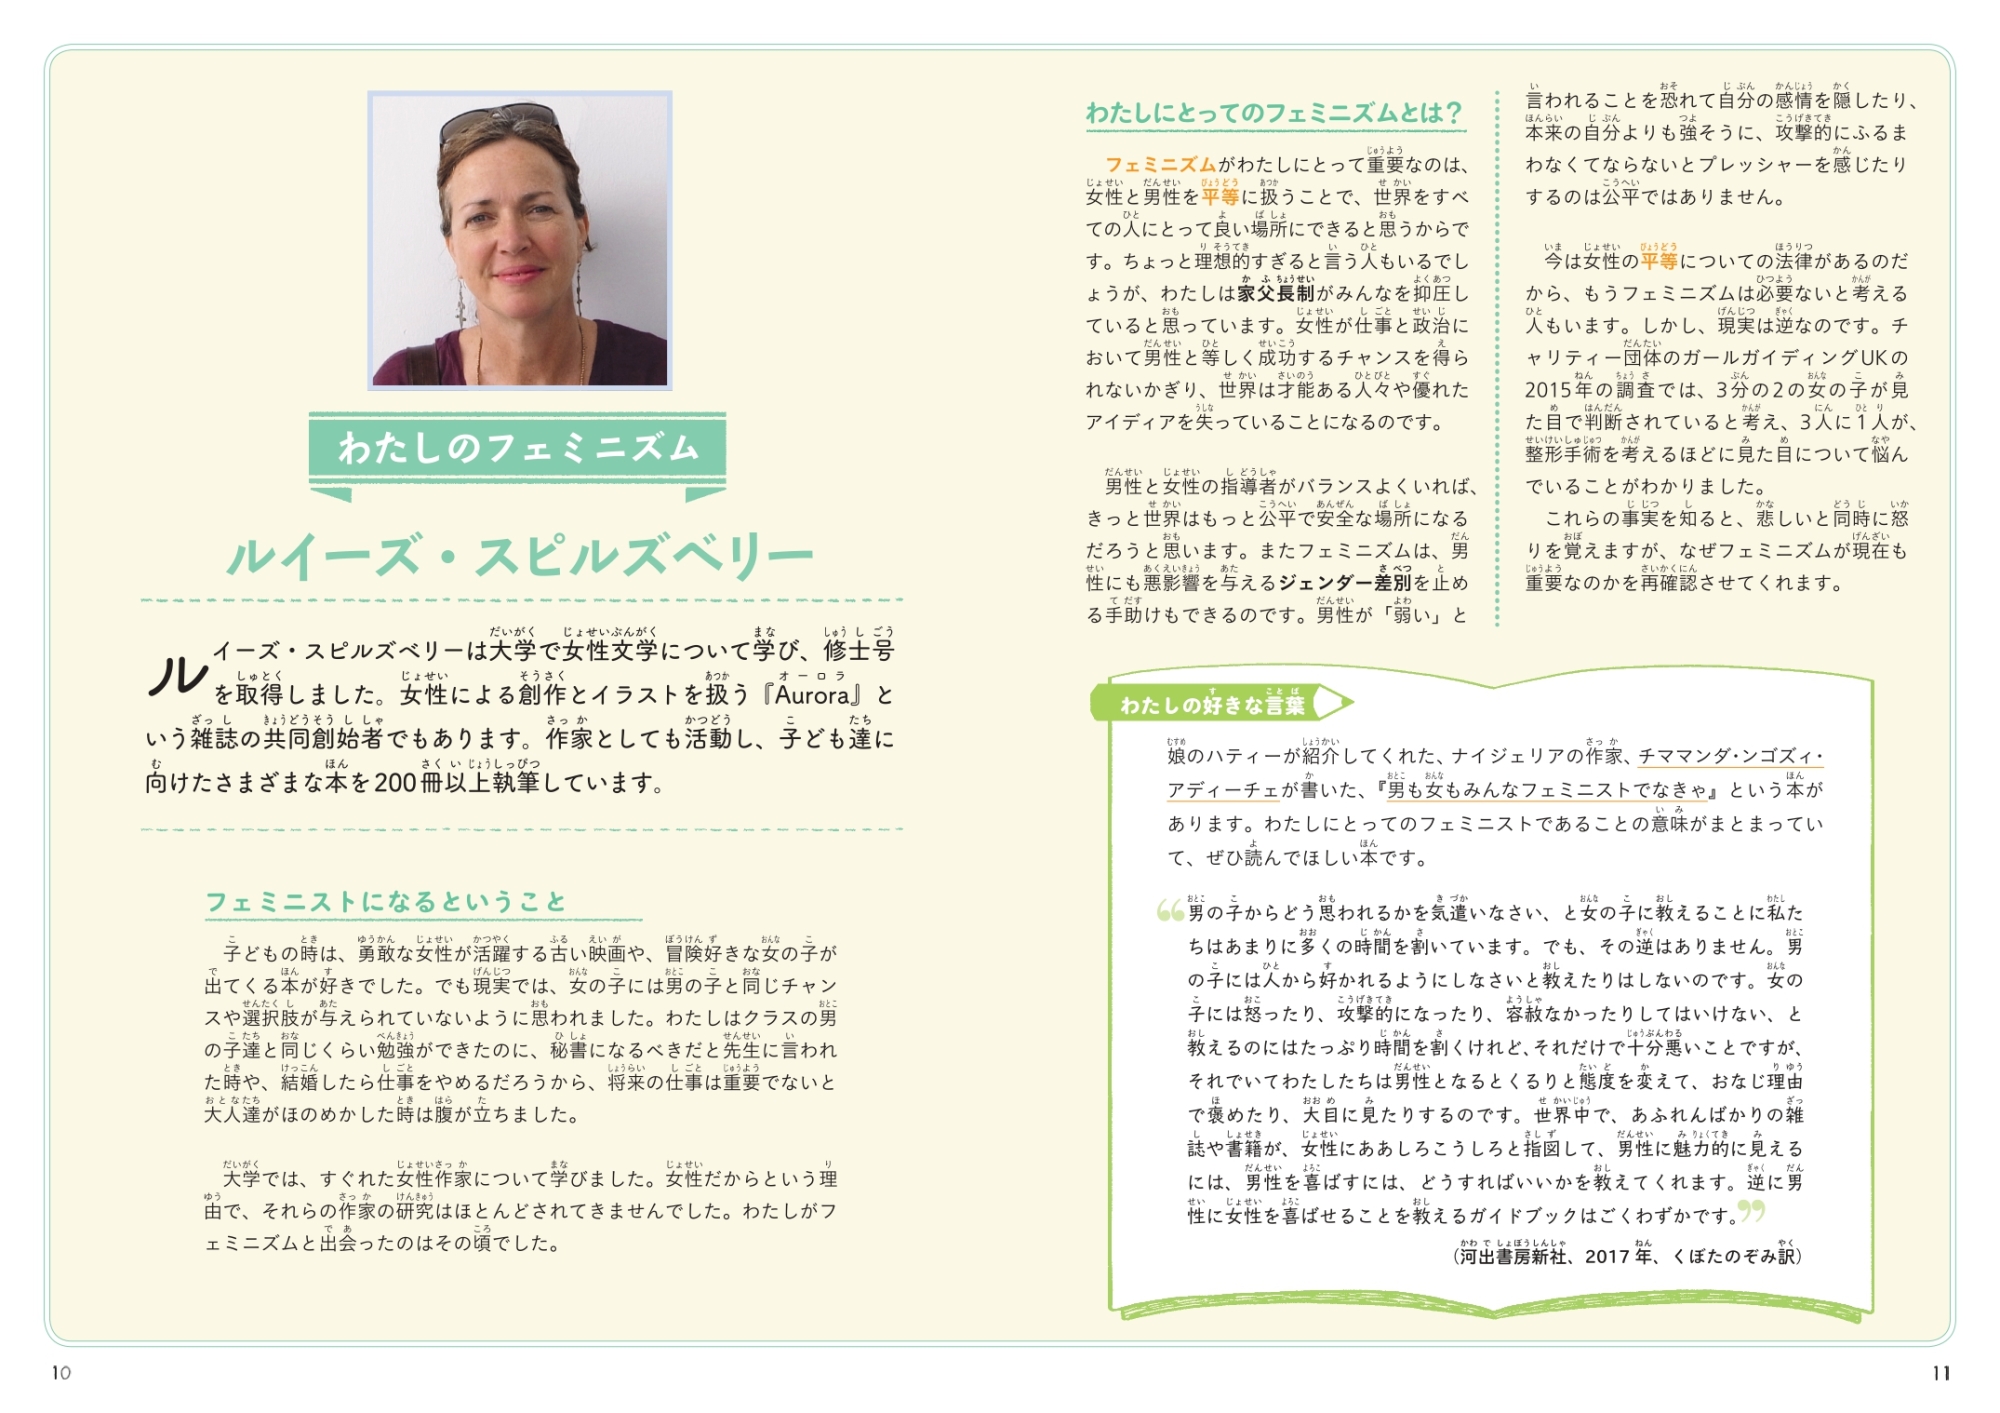 わたしのフェミニズム
ルイーズ・スピルズベリー
ルイーズ・スピルズベリーは大学で女性文学について学び、修士号
を取得しました。女性による創作とイラストを扱う『Aurora』と
いう雑誌の共同創始者でもあります。作家としても活動し、子ども達に
向けたさまざまな本を200冊以上執筆しています。
フェミニストになるということ
子どもの時は、勇敢な女性が活躍する古い映画や、冒険好きな女の子が
出てくる本が好きでした。でも現実では、女の子には男の子と同じチャン
スや選択肢が与えられていないように思われました。わたしはクラスの男
の子達と同じくらい勉強ができたのに、秘書になるべきだと先生に言われ
た時や、結婚したら仕事をやめるだろうから、将来の仕事は重要でないと
大人達がほのめかした時は腹が立ちました。
大学では、すぐれた女性作家について学びました。女性だからという理
由で、それらの作家の研究はほとんどされてきませんでした。わたしがフ
ェミニズムと出会ったのはその頃でした。
10
わたしにとってのフェミニズムとは？
フェミニズムがわたしにとって重要なのは、
女性と男性を平等に扱うことで、世界をすべ
ての人にとって良い場所にできると思うからで
す。ちょっと理想的すぎると言う人もいるでし
ょうが、わたしは家父長制がみんなを抑圧し
ていると思っています。女性が仕事と政治に
おいて男性と等しく成功するチャンスを得ら
れないかぎり、世界は才能ある人々や優れた
アイディアを失っていることになるのです。
男性と女性の指導者がバランスよくいれば、
きっと世界はもっと公平で安全な場所になる
だろうと思います。またフェミニズムは、男
性にも悪影響を与えるジェンダー差別を止め
る手助けもできるのです。男性が「弱い」と
言われることを恐れて自分の感情を隠したり、
本来の自分よりも強そうに、攻撃的にふるま
わなくてならないとプレッシャーを感じたり
するのは公平ではありません。
今は女性の平等についての法律があるのだ
から、もうフェミニズムは必要ないと考える
人もいます。しかし、現実は逆なのです。チ
ャリティー団体のガールガイディングUKの
2015年の調査では、3分の2の女の子が見
た目で判断されていると考え、3人に1人が、
整形手術を考えるほどに見た目について悩ん
でいることがわかりました。
これらの事実を知ると、悲しいと同時に怒
りを覚えますが、なぜフェミニズムが現在も
重要なのかを再確認させてくれます。
わたしの好きな言葉
娘のハティーが紹介してくれた、ナイジェリアの作家、チママンダ・ンゴズィ・
アディーチェが書いた、『男も女もみんなフェミニストでなきゃ』という本が
あります。わたしにとってのフェミニストであることの意味がまとまってい
て、ぜひ読んでほしい本です。
“男の子からどう思われるかを気遣いなさい、と女の子に教えることに私た
ちはあまりに多くの時間を割いています。でも、その逆はありません。男
の子には人から好かれるようにしなさいと教えたりはしないのです。女の
子には怒ったり、攻撃的になったり、容赦なかったりしてはいけない、と
教えるのにはたっぷり時間を割くけれど、それだけで十分悪いことですが、
それでいてわたしたちは男性となるとくるりと態度を変えて、おなじ理由
で褒めたり、大目に見たりするのです。世界中で、あふれんばかりの雑
誌や書籍が、女性にああしろこうしろと指図して、男性に魅力的に見える
には、男性を喜ばすには、どうすればいいかを教えてくれます。逆に男
性に女性を喜ばせることを教えるガイドブックはごくわずかです。”
（河出書房新社、2017年、くぼたのぞみ訳）
11